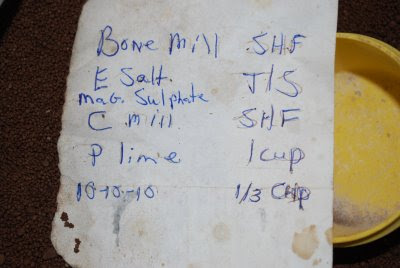 Bone Mill SHF
E Salt. T/S
mag. Sulphate
C mill SHF
P lime 1 cup
10-10-10 1/3 Cup